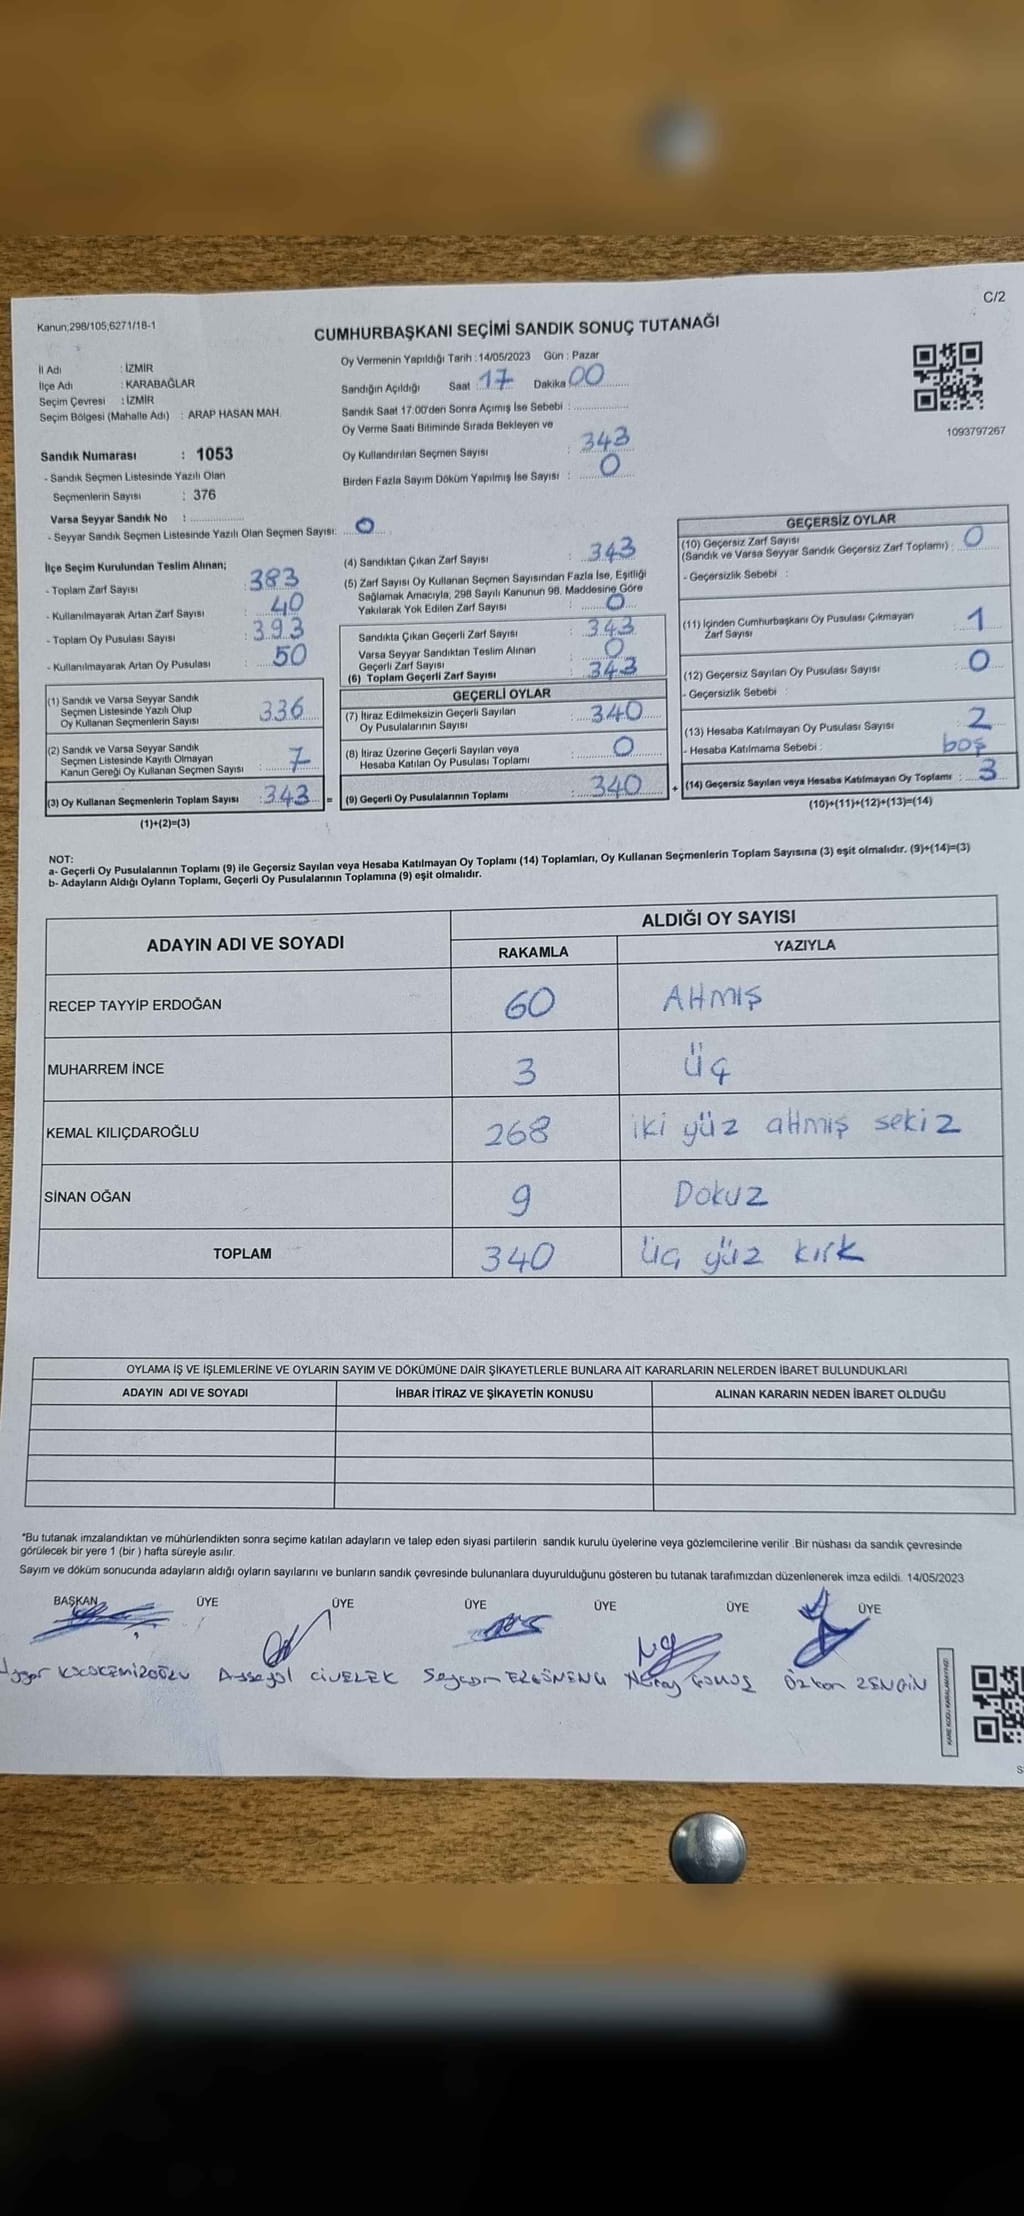 C/2
Kanun;298/105;6271/18-1
CUMHURBAŞKANI SEÇİMİ SANDIK SONUÇ TUTANAĞI
İl Adı : İZMİR
İlçe Adı : KARABAĞLAR
Seçim Çevresi : İZMİR
Seçim Bölgesi (Mahalle Adı) : ARAP HASAN MAH.
Sandık Numarası : 1053
- Sandık Seçmen Listesinde Yazılı Olan
Seçmenlerin Sayısı : 376
Varsa Seyyar Sandık No :
- Seyyar Sandık Seçmen Listesinde Yazılı Olan Seçmen Sayısı: 0
Oy Vermenin Yapıldığı Tarih :14/05/2023 Gün : Pazar
Sandığın Açıldığı Saat 17 Dakika 00
Sandık Saat 17.00'den Sonra Açımış İse Sebebi :
Oy Verme Saati Bitiminde Sırada Bekleyen ve
Oy Kullandırılan Seçmen Sayısı : 343
Birden Fazla Sayım Döküm Yapılmış İse Sayısı : 0
1093797267
İlçe Seçim Kurulundan Teslim Alınan;
- Toplam Zarf Sayısı : 383
- Kullanılmayarak Artan Zarf Sayısı : 40
- Toplam Oy Pusulası Sayısı : 393
- Kullanılmayarak Artan Oy Pusulası : 50
(1) Sandık ve Varsa Seyyar Sandık
Seçmen Listesinde Yazılı Olup
Oy Kullanan Seçmenlerin Sayısı 336
(2) Sandık ve Varsa Seyyar Sandık
Seçmen Listesinde Kayıtlı Olmayan
Kanun Gereği Oy Kullanan Seçmen Sayısı : 7
(3) Oy Kullanan Seçmenlerin Toplam Sayısı : 343 =
(1)+(2)=(3)
(4) Sandıktan Çıkan Zarf Sayısı : 343
(5) Zarf Sayısı Oy Kullanan Seçmen Sayısından Fazla İse, Eşitliği
Sağlamak Amacıyla, 298 Sayılı Kanunun 98. Maddesine Göre
Yakılarak Yok Edilen Zarf Sayısı : 0
Sandıkta Çıkan Geçerli Zarf Sayısı : 343
Varsa Seyyar Sandıktan Teslim Alınan
Geçerli Zarf Sayısı : 0
(6) Toplam Geçerli Zarf Sayısı : 343
GEÇERLİ OYLAR
(7) İtiraz Edilmeksizin Geçerli Sayılan
Oy Pusulalarının Sayısı : 340
(8) İtiraz Üzerine Geçerli Sayılan veya
Hesaba Katılan Oy Pusulası Toplamı : 0
(9) Geçerli Oy Pusulalarının Toplamı : 340 +
GEÇERSİZ OYLAR
(10) Geçersiz Zarf Sayısı
(Sandık ve Varsa Seyyar Sandık Geçersiz Zarf Toplamı) : 0
- Geçersizlik Sebebi :
(11) İçinden Cumhurbaşkanı Oy Pusulası Çıkmayan
Zarf Sayısı : 1
(12) Geçersiz Sayılan Oy Pusulası Sayısı : 0
- Geçersizlik Sebebi :
(13) Hesaba Katılmayan Oy Pusulası Sayısı : 2
- Hesaba Katılmama Sebebi : boş
(14) Geçersiz Sayılan veya Hesaba Katılmayan Oy Toplamı : 3
(10)+(11)+(12)+(13)=(14)
NOT:
a- Geçerli Oy Pusulalarının Toplamı (9) ile Geçersiz Sayılan veya Hesaba Katılmayan Oy Toplamı (14) Toplamları, Oy Kullanan Seçmenlerin Toplam Sayısına (3) eşit olmalıdır. (9)+(14)=(3)
b- Adayların Aldığı Oyların Toplamı, Geçerli Oy Pusulalarının Toplamına (9) eşit olmalıdır.
ADAYIN ADI VE SOYADI ALDIĞI OY SAYISI
RAKAMLA YAZIYLA
RECEP TAYYİP ERDOĞAN 60 Altmış
MUHARREM İNCE 3 üç
KEMAL KILIÇDAROĞLU 268 iki yüz altmış sekiz
SİNAN OĞAN 9 Dokuz
TOPLAM 340 üç yüz kırk
OYLAMA İŞ VE İŞLEMLERİNE VE OYLARIN SAYIM VE DÖKÜMÜNE DAİR ŞİKAYETLERLE BUNLARA AİT KARARLARIN NELERDEN İBARET BULUNDUKLARI
ADAYIN ADI VE SOYADI İHBAR İTİRAZ VE ŞİKAYETİN KONUSU ALINAN KARARIN NEDEN İBARET OLDUĞU
*Bu tutanak imzalandıktan ve mühürlendikten sonra seçime katılan adayların ve talep eden siyasi partilerin sandık kurulu üyelerine veya gözlemcilerine verilir .Bir nüshası da sandık çevresinde
görülecek bir yere 1 (bir ) hafta süreyle asılır.
Sayım ve döküm sonucunda adayların aldığı oyların sayılarını ve bunların sandık çevresinde bulunanlara duyurulduğunu gösteren bu tutanak tarafımızdan düzenlenerek imza edildi. 14/05/2023
BAŞKAN ÜYE ÜYE ÜYE ÜYE ÜYE ÜYE
Ayşegül CİVELEK Özkan ZENGİN